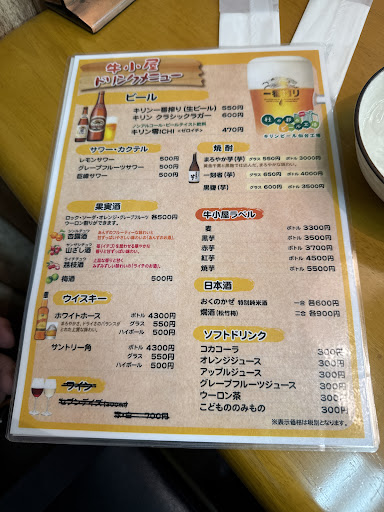 牛小屋
ドリンクメニュー
ビール
キリン一番搾り(生ビール) 550円
キリン クラシックラガー 600円
ノンアルコール・ビールテイスト飲料
キリン零ICHI ＜ゼロイチ＞ 470円
一番搾り
キリンビール仙台工場
サワー・カクテル
レモンサワー 500円
グレープフルーツサワー 500円
巨峰サワー 500円
果実酒
ロック・ソーダ・オレンジ・グレープフルーツ 各500円
ウーロン割りができます。
杏露酒
山ざし酒
ライチチュウ
茘枝酒
梅酒 500円
ウイスキー
ホワイトホース ボトル 4300円
グラス 550円
ハイボール 550円
サントリー角 ボトル 4300円
グラス 550円
ハイボール 550円
ワイン
焼酎
まろやか芋(芋) グラス 550円 ボトル 3000円
一刻者(芋) グラス 650円 ボトル 4000円
黒麹(芋) グラス 600円 ボトル 3500円
牛小屋ラベル
麦 ボトル 3300円
黒芋 ボトル 3500円
赤芋 ボトル 3700円
紅芋 ボトル 4500円
焼芋 ボトル 5500円
日本酒
おくのかぜ 特別純米酒 一合 各600円
燗酒(松竹梅) 二合 各900円
ソフトドリンク
コカコーラ 300円
オレンジジュース 300円
アップルジュース 300円
グレープフルーツジュース 300円
ウーロン茶 300円
こどもののみもの 300円
※表示価格は税別となります。